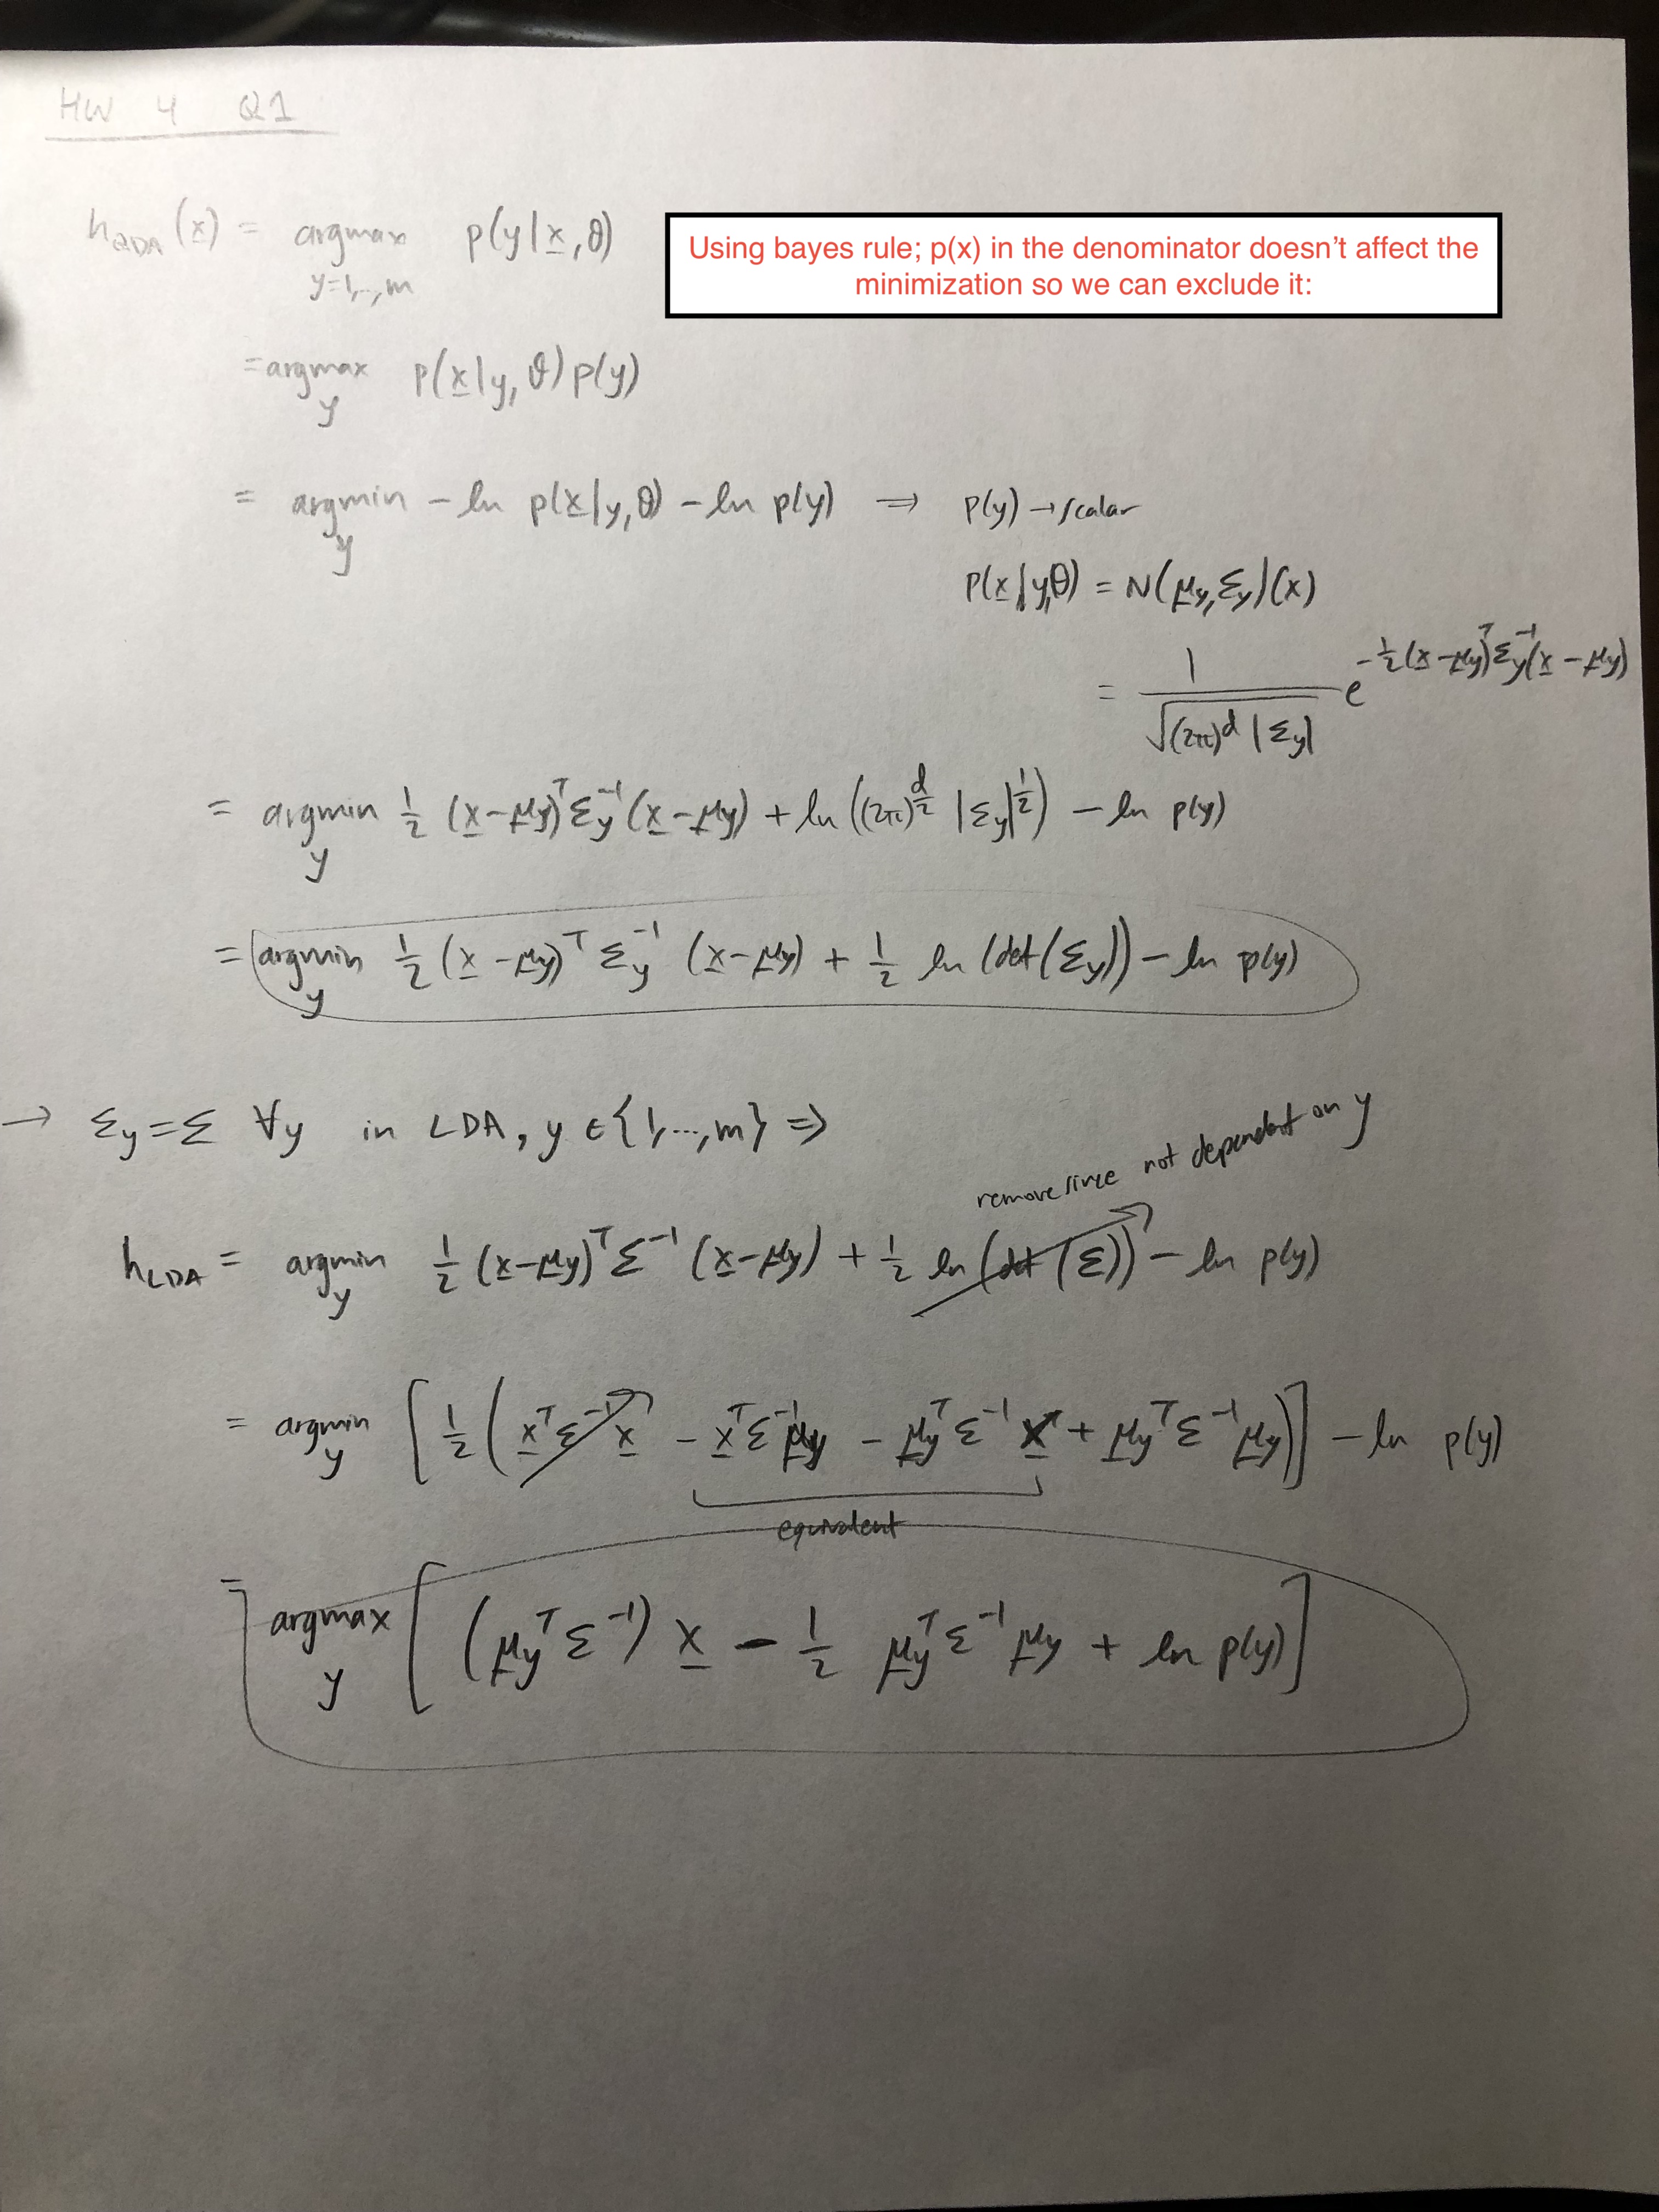 HW 4 Q1
h_QDA(x) = argmax_{y=1,..,m} p(y|x,θ)
Using bayes rule; p(x) in the denominator doesn’t affect the
minimization so we can exclude it:
= argmax_y p(x|y,θ)p(y)
= argmin_y - ln p(x|y,θ) - ln p(y) ⇒ p(y) → scalar
p(x|y,θ) = N(μ_y,Σ_y)(x)
= 1/√((2π)^d |Σ_y|) e^{-½(x-μ_y)^T Σ_y^{-1}(x-μ_y)}
= argmin_y ½ (x-μ_y)^T Σ_y^{-1} (x-μ_y) + ln((2π)^{d/2} |Σ_y|^{1/2}) - ln p(y)
= argmin_y ½ (x-μ_y)^T Σ_y^{-1} (x-μ_y) + ½ ln(det(Σ_y)) - ln p(y)
→ Σ_y=Σ ∀y in LDA, y ∈ {1,...,m} ⇒
remove since not dependent on y
h_LDA = argmin_y ½ (x-μ_y)^T Σ^{-1} (x-μ_y) + ½ ln(det(Σ)) - ln p(y)
= argmin_y [½ (x^T Σ^{-1} x - x^T Σ^{-1} μ_y - μ_y^T Σ^{-1} x + μ_y^T Σ^{-1} μ_y)] - ln p(y)
equivalent
= argmax_y [(μ_y^T Σ^{-1}) x - ½ μ_y^T Σ^{-1} μ_y + ln p(y)]